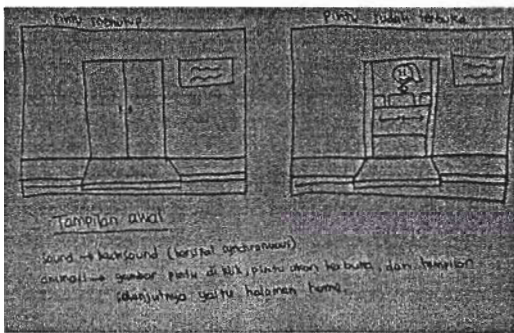 Pintu menutup
Pintu sudah terbuka
Tampilan awal
Sound → backsound (bersifat synchronuous)
animasi → gambar pintu di klik, pintu akan terbuka, dan tampilan
selanjutnya yaitu halaman home.